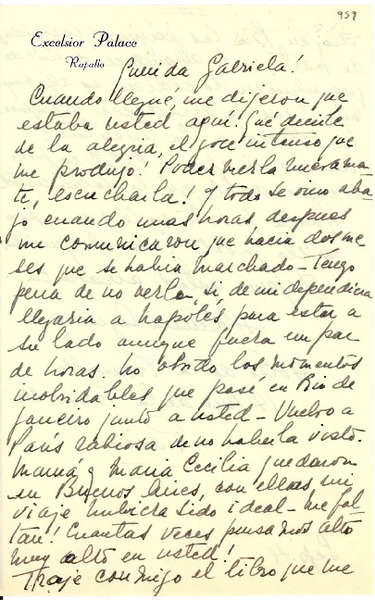 959
Excelsior Palace
Rapallo
Querida Gabriela!
Cuando llegué, me dijeron que
estaba usted aquí! Qué decirte
de la alegría, el goce intenso que
me produjo! Poder verla nuevamen
te, escucharla! y todo se vino aba
jo cuando unas horas despues
me comunicaron que hacia dos me
ses que se habia marchado - Tengo
pena de no verla. Si de mi dependiera
llegaria a Napóles para estar a
su lado aunque fuera un par
de horas. No olvido los momentos
inolvidables que pasé en Rio de
Janeiro junto a usted - Vuelvo a
París rabiosa de no haberla visto.
Mamá y Maria Cecilia quedaron
en Buenos Aires, con ellas mi
viaje hubiera sido ideal - me fal
tan! Cuantas veces pensamos alto
muy alto en usted!
Traje conmigo el libro que me